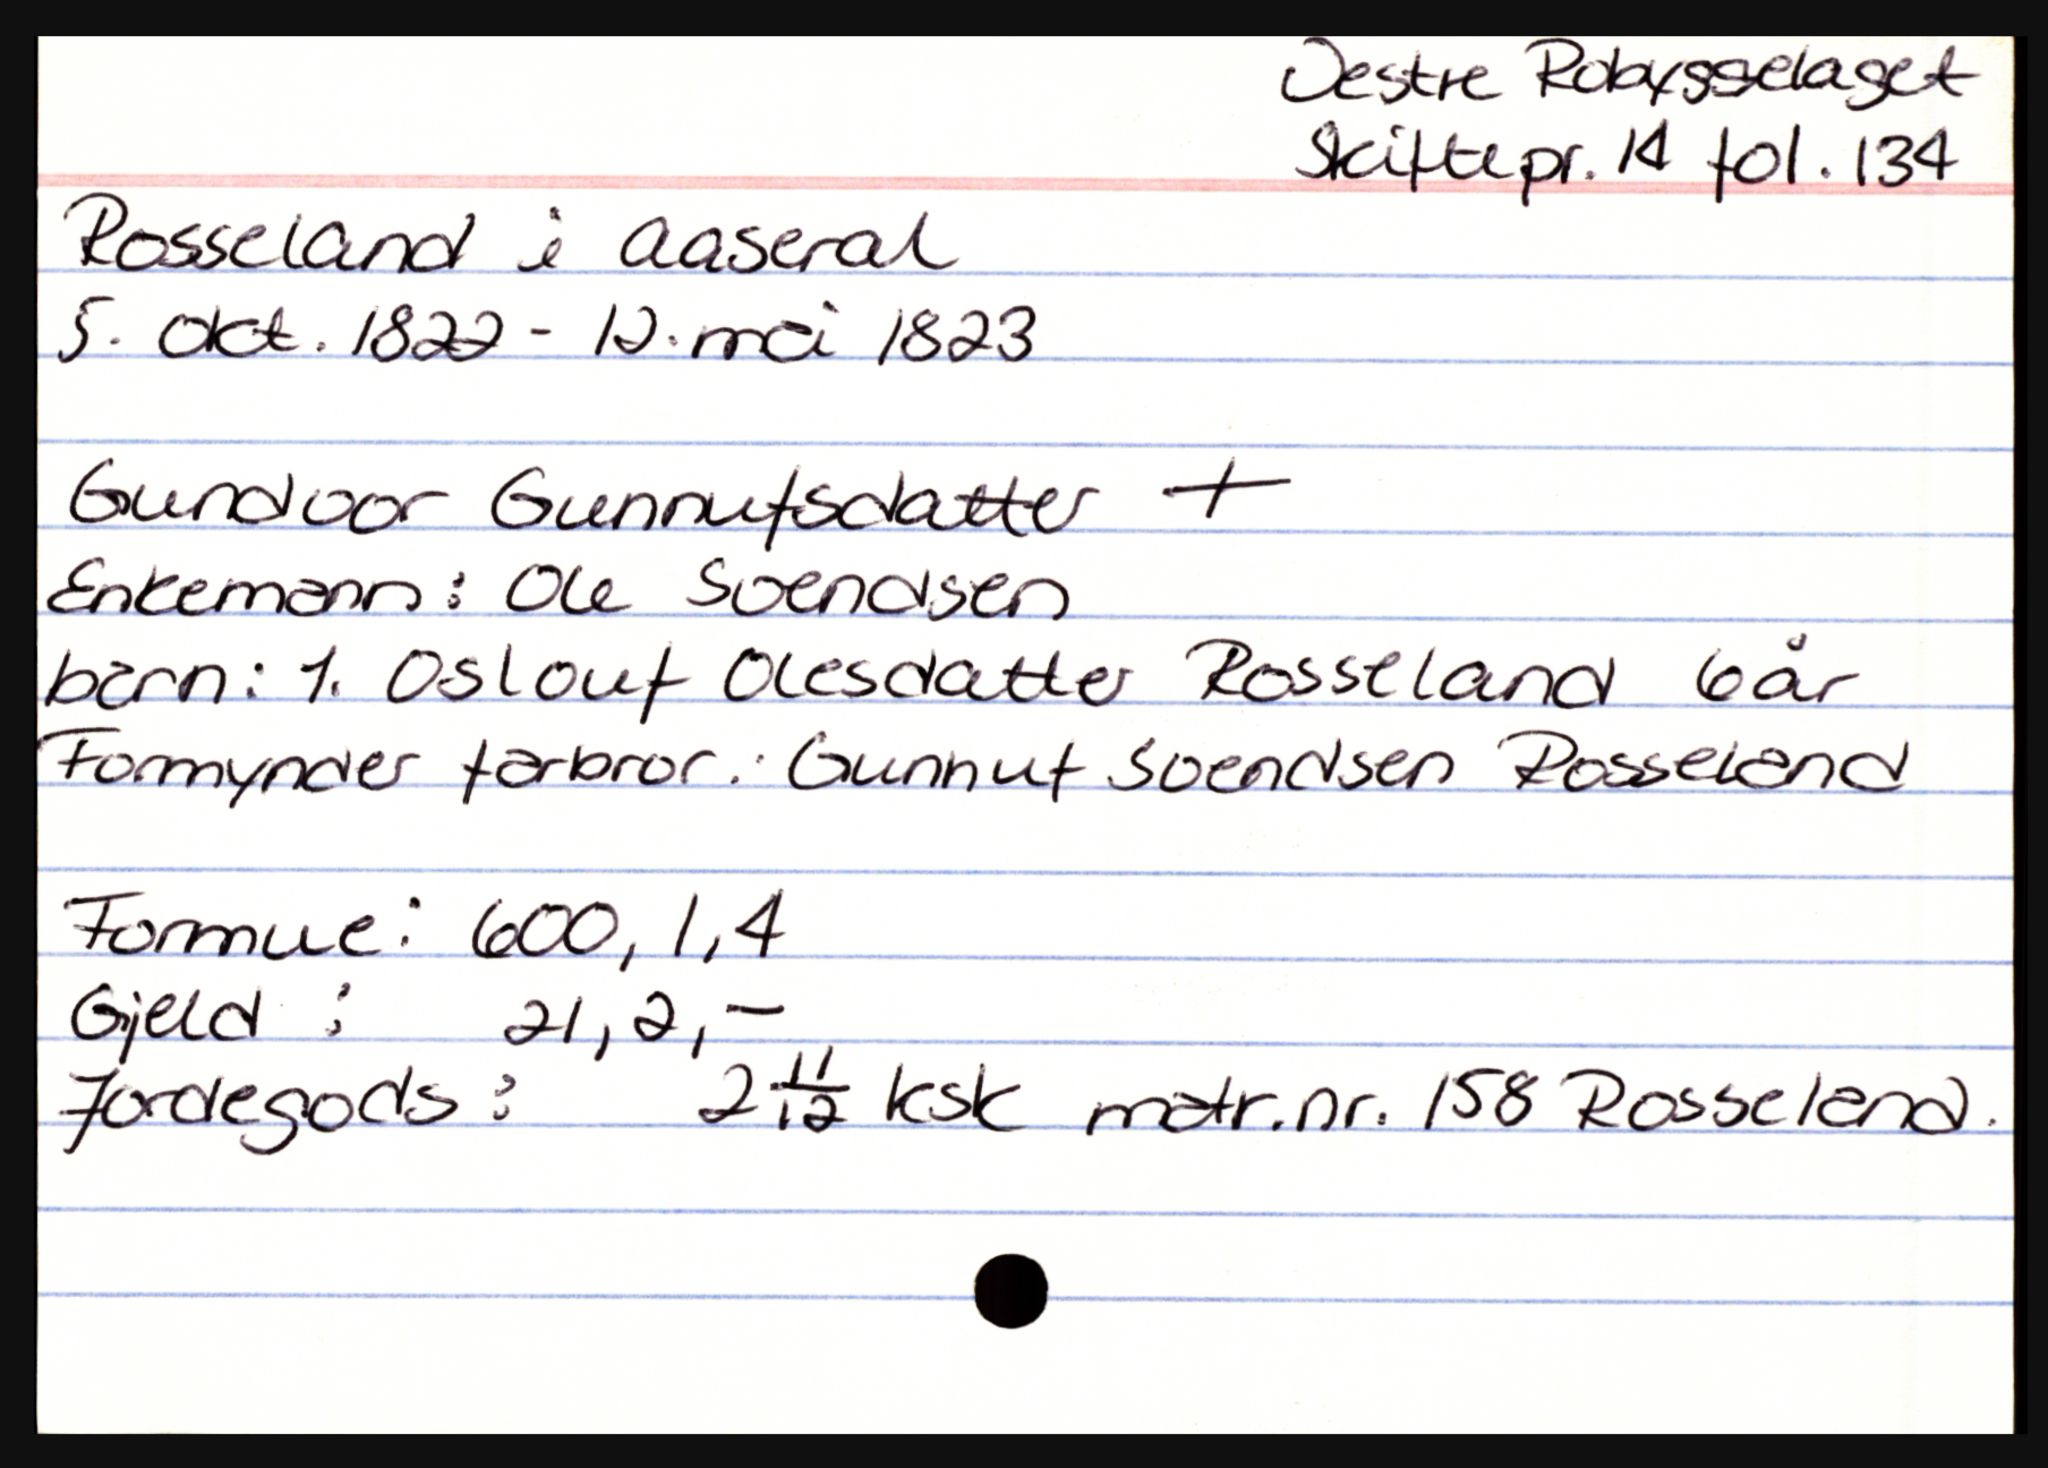 Vestre Robygselaget
Skiftepr. 14 fol. 134
Rosseland i Aaseral
5. okt. 1822 - 12. mai 1823
Gundvor Gunnufsdatter +
Enkemann: Ole Svendsen
barn: 1. Oslouf Olesdatter Rosseland 6 år
Formynder farbror: Gunnuf Svendsen Rosseland
Formue: 600, 1, 4
Gjeld : 21, 2, -
Jordegods : 2 11/12 ksk matr.nr. 158 Rosseland.